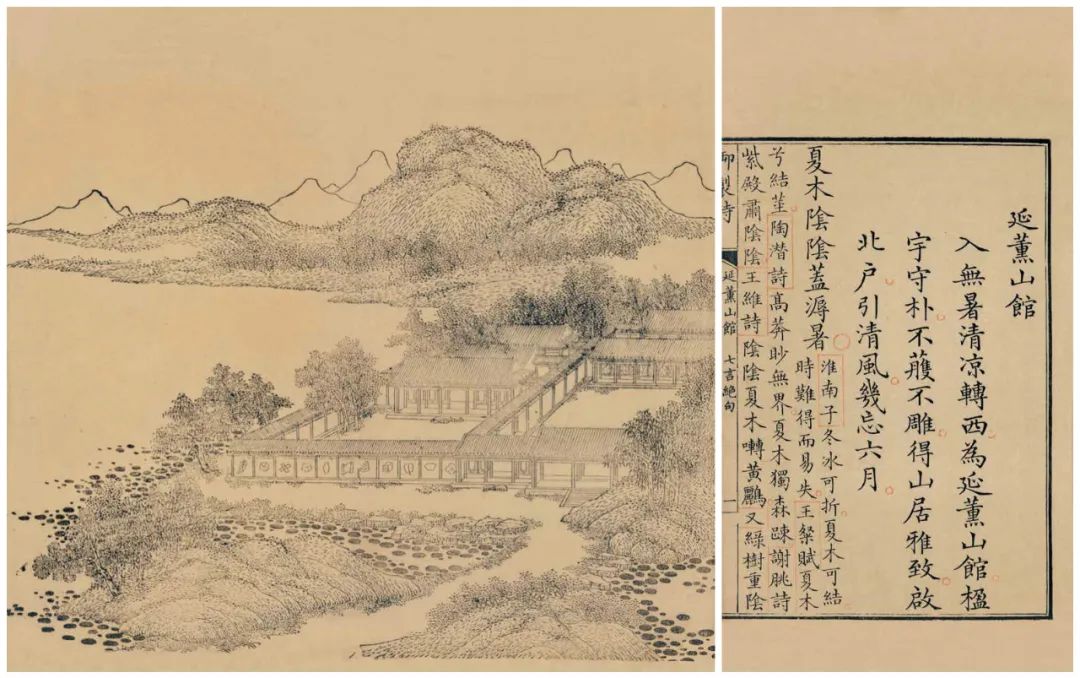 延薰山館
入無暑清凉轉西為延薰山館楹
宇守朴不雘不雕得山居雅致啟
北户引清風幾忘六月
夏木陰陰蓋溽暑
淮南子冬冰可折夏木可結
時難得而易失王粲賦夏木
兮結莖陶潛詩高莽眇無界夏木獨森疎謝朓詩
紫殿肅陰陰王維詩陰陰夏木囀黃鸝又綠樹重陰
御製詩 延薰山館 七言絕句 一